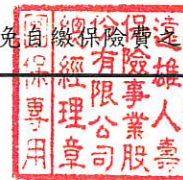 免自繳保險費之
遠雄人壽
保險事業股
份有限公司
總經理章
保專用